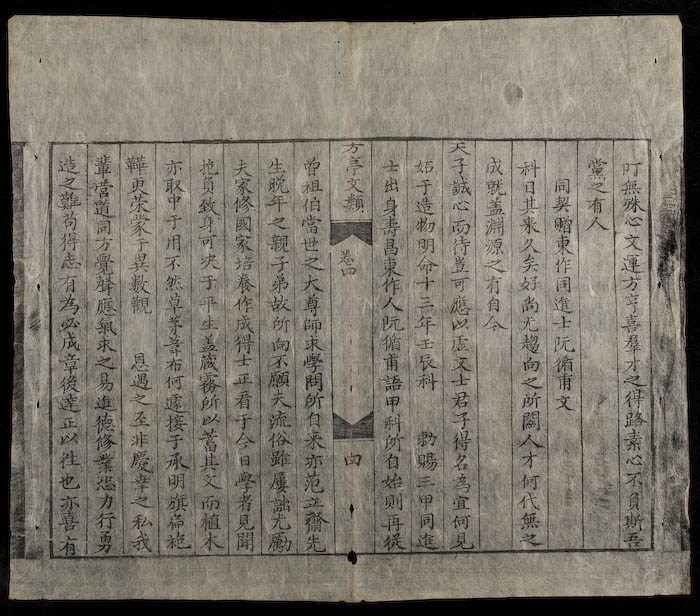 叮無殊心文運方亨喜羣才之得路素心不負斯吾
黨之有人
同契贈東作同進士阮循甫文
科目其来久矣好尚尤趨向之所關人才何代無之
成就盖淵源之有自今
天子誠心而待豈可應以虛文士君子得名為宜何見
妬于造物明命十三年壬辰科 勅賜三甲同進
士出身壽昌東作人阮循甫語甲科所自始則再從
方亭文類 卷四 四
曾祖伯當世之大尊師求學問所自来亦范立齋先
生晚年之親子弟故所向不願夫流俗雖屢詘尤勵
夫家修國家培養作成得士正看于今日學者見聞
抱負致身可决于平生盖蔵霧所以蓄其文而植木
亦取中于用不然草茅韋布何遽接于承明旂扁袍
鞾更荣蒙于異數觀 恩遇之至非慶幸之私我
輩當道同方覺聲應氣求之易進德修業忠力行勇
造之難苟得志有為必成章後達正以性也亦喜有